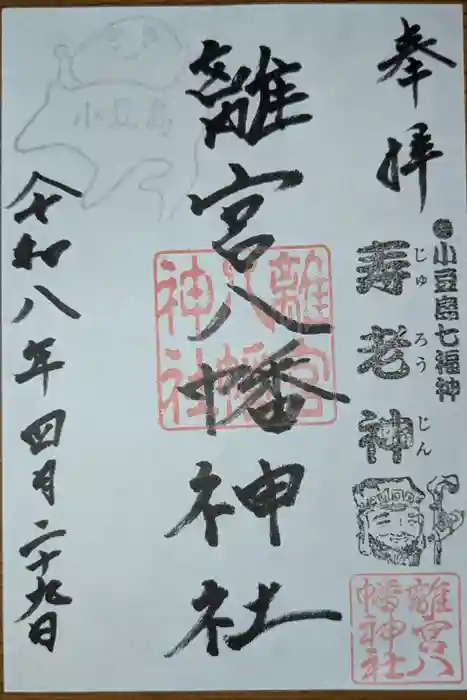 奉拝
㊆小豆島七福神
寿老神
じゅ
ろう
じん
離宮八幡神社
離宮
八幡
神社
離宮八
幡神社
小豆島
令和八年四月二十九日